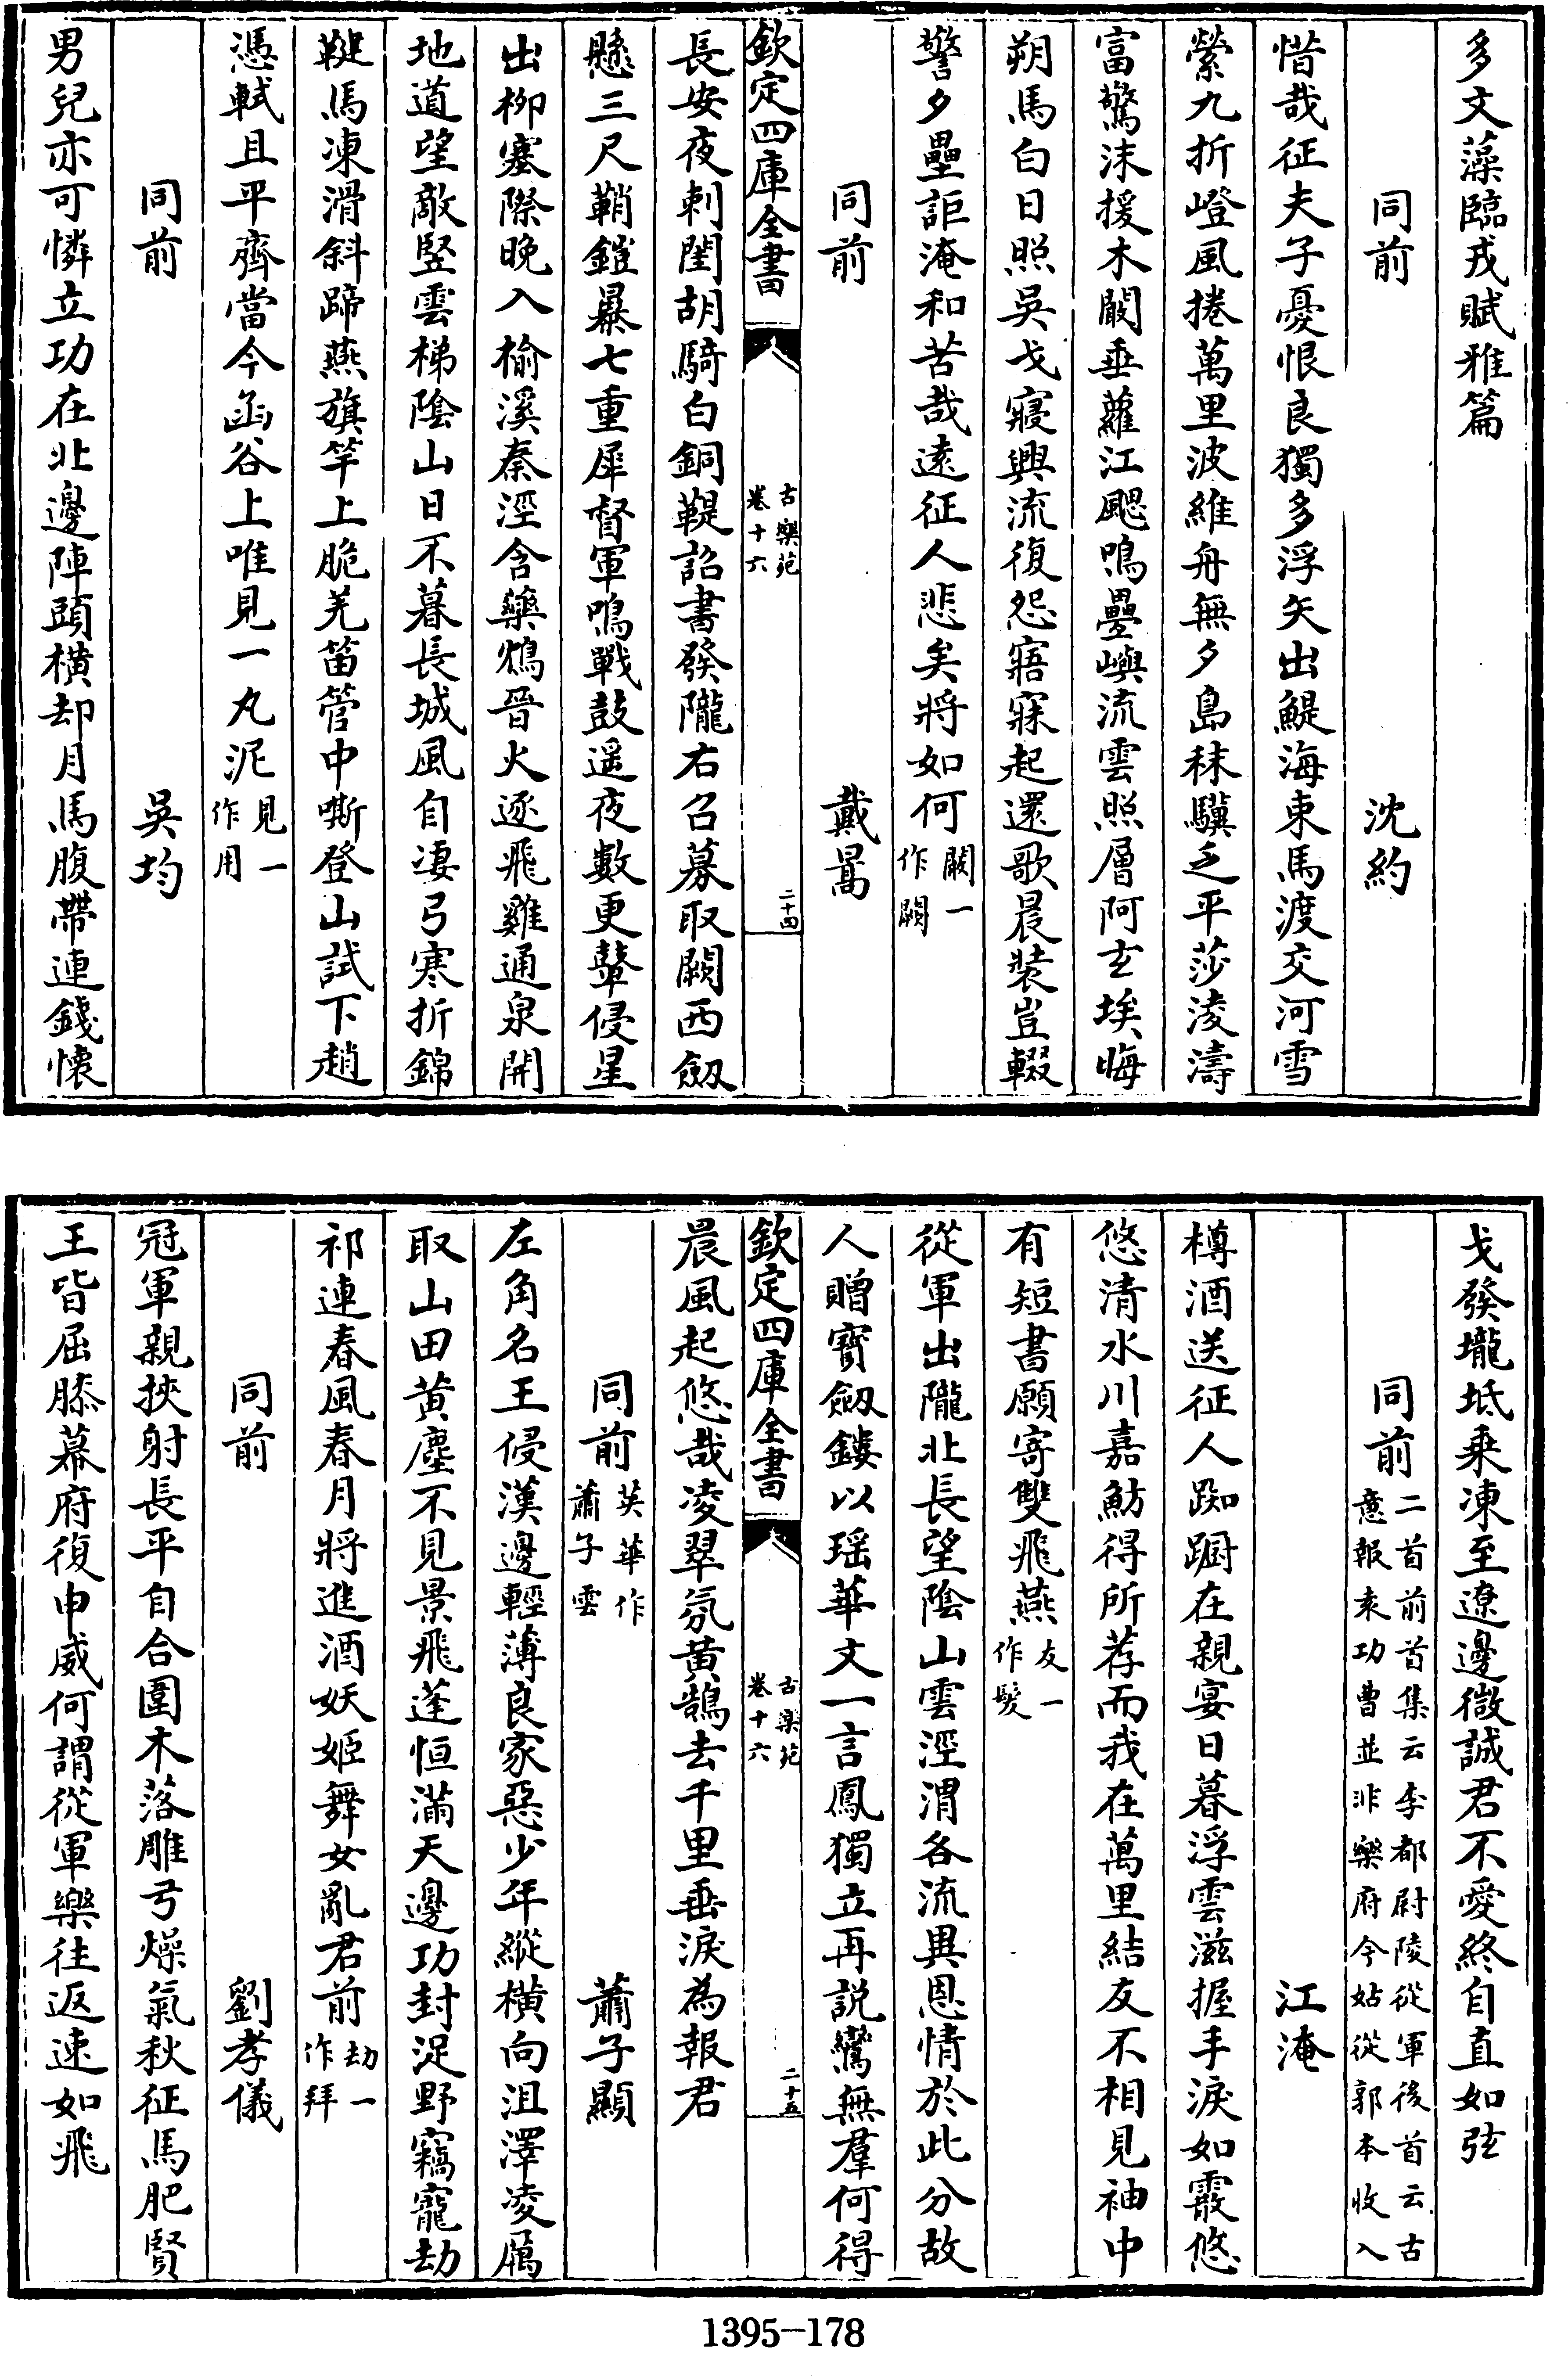 多文藻臨戎賦雅篇
同前　沈約
惜哉征夫子憂恨良獨多浮矢出鯷海束馬渡交河雪
縈九折嶝風捲萬里波維舟無夕島秣驥乏平莎淩濤
富驚沫援木闕垂蘿江颸鳴疊嶼流雲照層阿玄埃晦
朔馬白日照吳戈寢興流復怨寤寐起還歌晨裝豈輟
警夕壘詎淹和苦哉遠征人悲矣將如何闕一作闕
同前　戴暠
欽定四庫全書　古樂苑卷十六　二十四
長安夜刺閨胡騎白銅鞮詔書發隴右召募取闕西劔
懸三尺鞘鎧暴七重犀督軍鳴戰鼓遥夜數更鼙侵星
出栁塞際晚入榆溪秦涇含藥鴆晉火逐飛雞通泉開
地道望敵竪雲梯陰山日不暮長城風自凄弓寒折錦
鞬馬凍滑斜蹄燕旗竿上脆羌笛管中嘶登山試下趙
憑軾且平齊當今函谷上唯見一丸泥見一作用
同前　吳均
男兒亦可憐立功在北邊陣頭横却月馬腹帶連錢懷
戈發壠坻乗凍至遼邊微誠君不愛終自直如弦
同前二首前首集云李都尉陵從軍後首云古意報袁功曹並非樂府今姑從郭本收入
江淹
樽酒送征人踟蹰在親宴日暮浮雲滋握手淚如霰悠
悠清水川嘉魴得所荐而我在萬里結友不相見袖中
有短書願寄雙飛燕友一作髮
從軍出隴北長望陰山雲涇渭各流異恩情於此分故
人贈寶劔鏤以瑶華文一言鳳獨立再説鸞無羣何得
欽定四庫全書　古樂苑卷十六　二十五
晨風起悠哉凌翠氛黄鵠去千里垂淚為報君
同前英華作蕭子雲　蕭子顯
左角名王侵漢邊輕薄良家惡少年縱横向沮澤凌厲
取山田黄塵不見景飛蓬恒滿天邊功封浞野竊寵劫
祁連春風春月將進酒妖姬舞女亂君前劫一作拜
同前　劉孝儀
冠軍親挾射長平自合圍木落雕弓燥氣秋征馬肥賢
王皆屈膝幕府復申威何謂從軍樂往返速如飛
1395-178